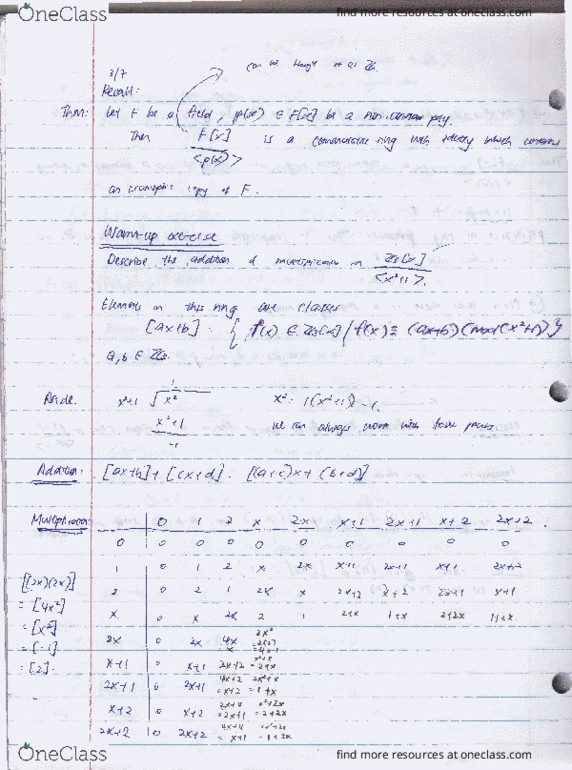 OneClass
find more resources at oneclass.com
can be thought of as Z₃.
3/7
Recall:
Thm: Let F be a field, p(x) ∈ F[x] be a non-constant poly.
Then F[x] / <p(x)> is a commutative ring with identity which contains
an isomorphic copy of F.
Warm-up exercise
Describe the addition & multiplication in Z₃[x] / <x²+1>.
Elements in this ring are classes
[ax+b] = { f(x) ∈ Z₃[x] / f(x) ≡ (ax+b) (mod (x²+1)) }
a, b ∈ Z₃.
Aside. x²+1 √ x² x² = 1(x²+1) - 1.
x²+1 we can always work with
-1
Addition: [ax+b] + [cx+d] = [(a+c)x + (b+d)]
Multiplication: 0 1 2 x 2x x+1 2x+1 x+2 2x+2
0 0 0 0 0 0 0 0 0 0
1 0 1 2 x 2x x+1 2x+1 2x+2
[(2x)(2x)] 2 0 2 1 2x x 2x+2 x+2 2x+1 x+1
= [4x²] x 0 x 2x 2 1 1+x 2+2x
= [x²] 2x 0 2x 4x
= [-1] x+1 0 x+1 2x+2 = 2+x
= [2]. 2x+1 0 2x+1 4x+2 = x+2 = 1+x
x+2 0 x+2 2x+4 = 2x+1 = 2+2x
2x+2 0 2x+2 4x+4 = x+1 = 1+2x
OneClass
find more resources at oneclass.com